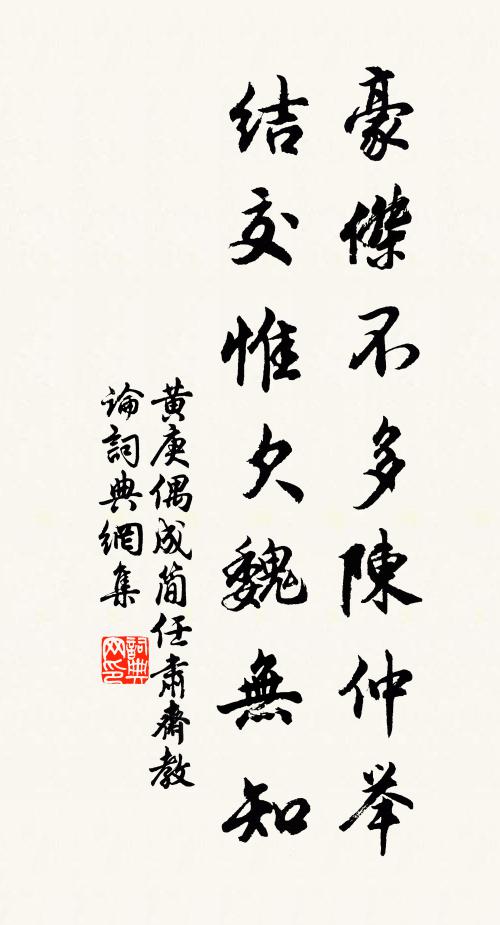 豪傑不多陳仲举
結交惟欠魏無知
黄庚偶成簡任肅齋教
論詞典網集
詞典網印